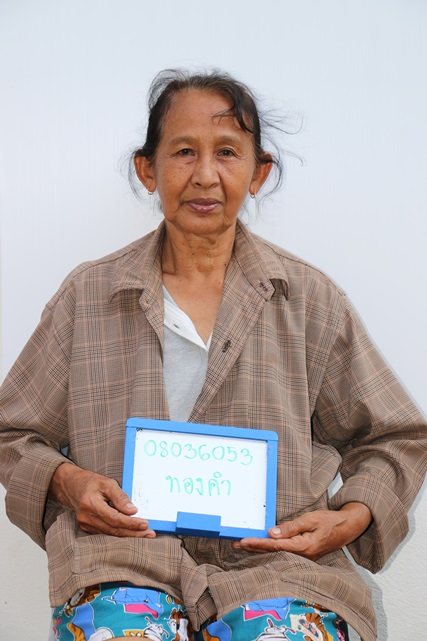 08036053
ทองคำ